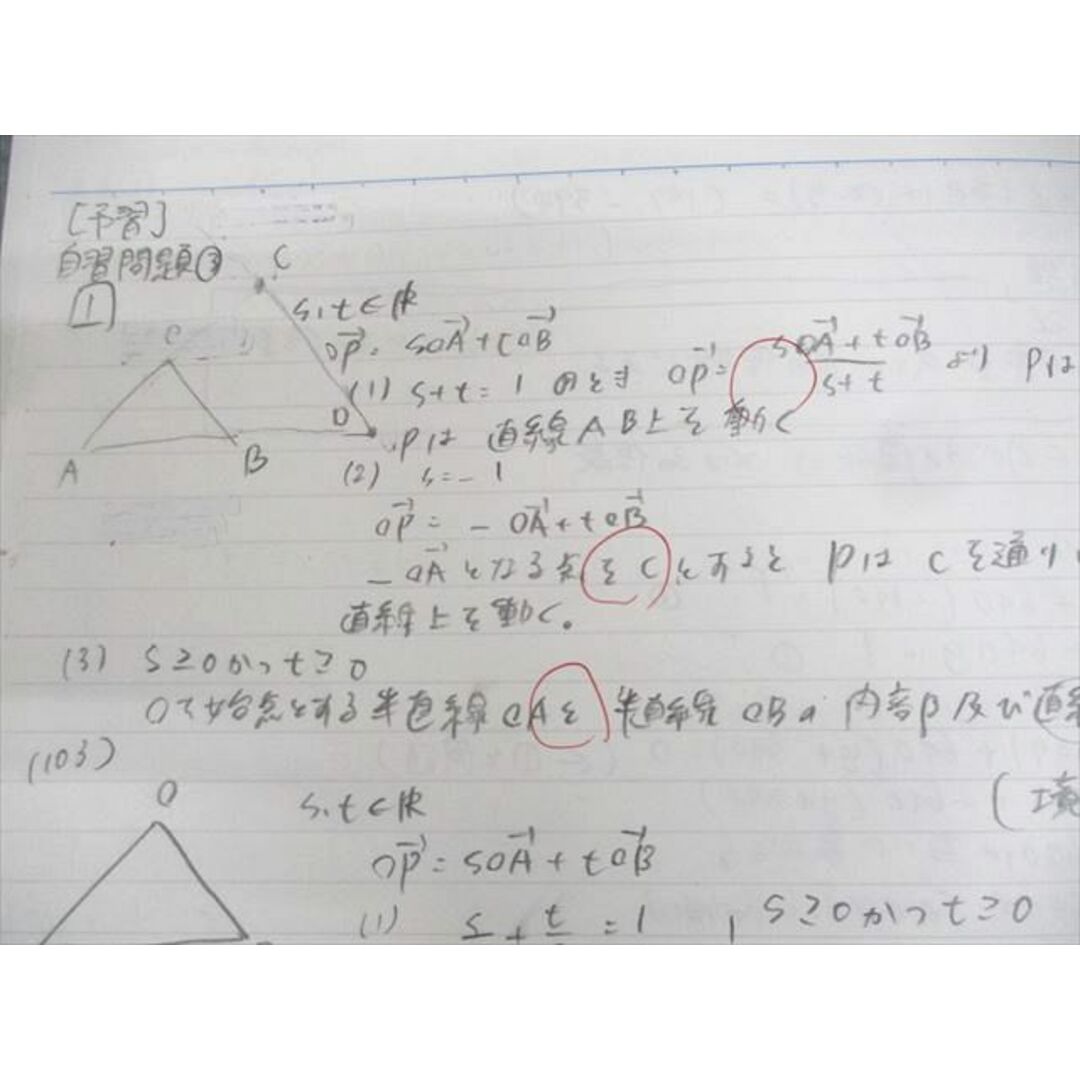 [予習]
自習問題③
1
C
s,t∈ℝ
O
A
B
D
OP→ = sOA→ + tOB→
(1) s+t=1 のとき OP→ = sOA→+tOB→ / s+t より Pは
Pは 直線AB上を動く
(2) s=-1
OP→ = -OA→+tOB→
-OA→となる点をCとすると PはCを通り
直線上を動く。
(3) s≥0かつt≥0
Oを始点とする半直線OAと 半直線OBの 内部及び直線
(境
(103)
O
s,t∈ℝ
OP→ = sOA→ + tOB→
(1) s + t = 1 , s≥0かつt≥0